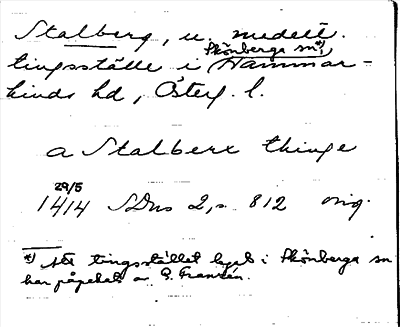 Stalberg, u. medelt.
Skönberga sn *)
tingsställe i Hammar-
kinds hd, Österg. l.
a Stalberx thinge
29/5
1414 SDns 2, s. 812 orig.
*) Att tingsstället legat i Skönberga sn
har påpekats av G. Franzén.